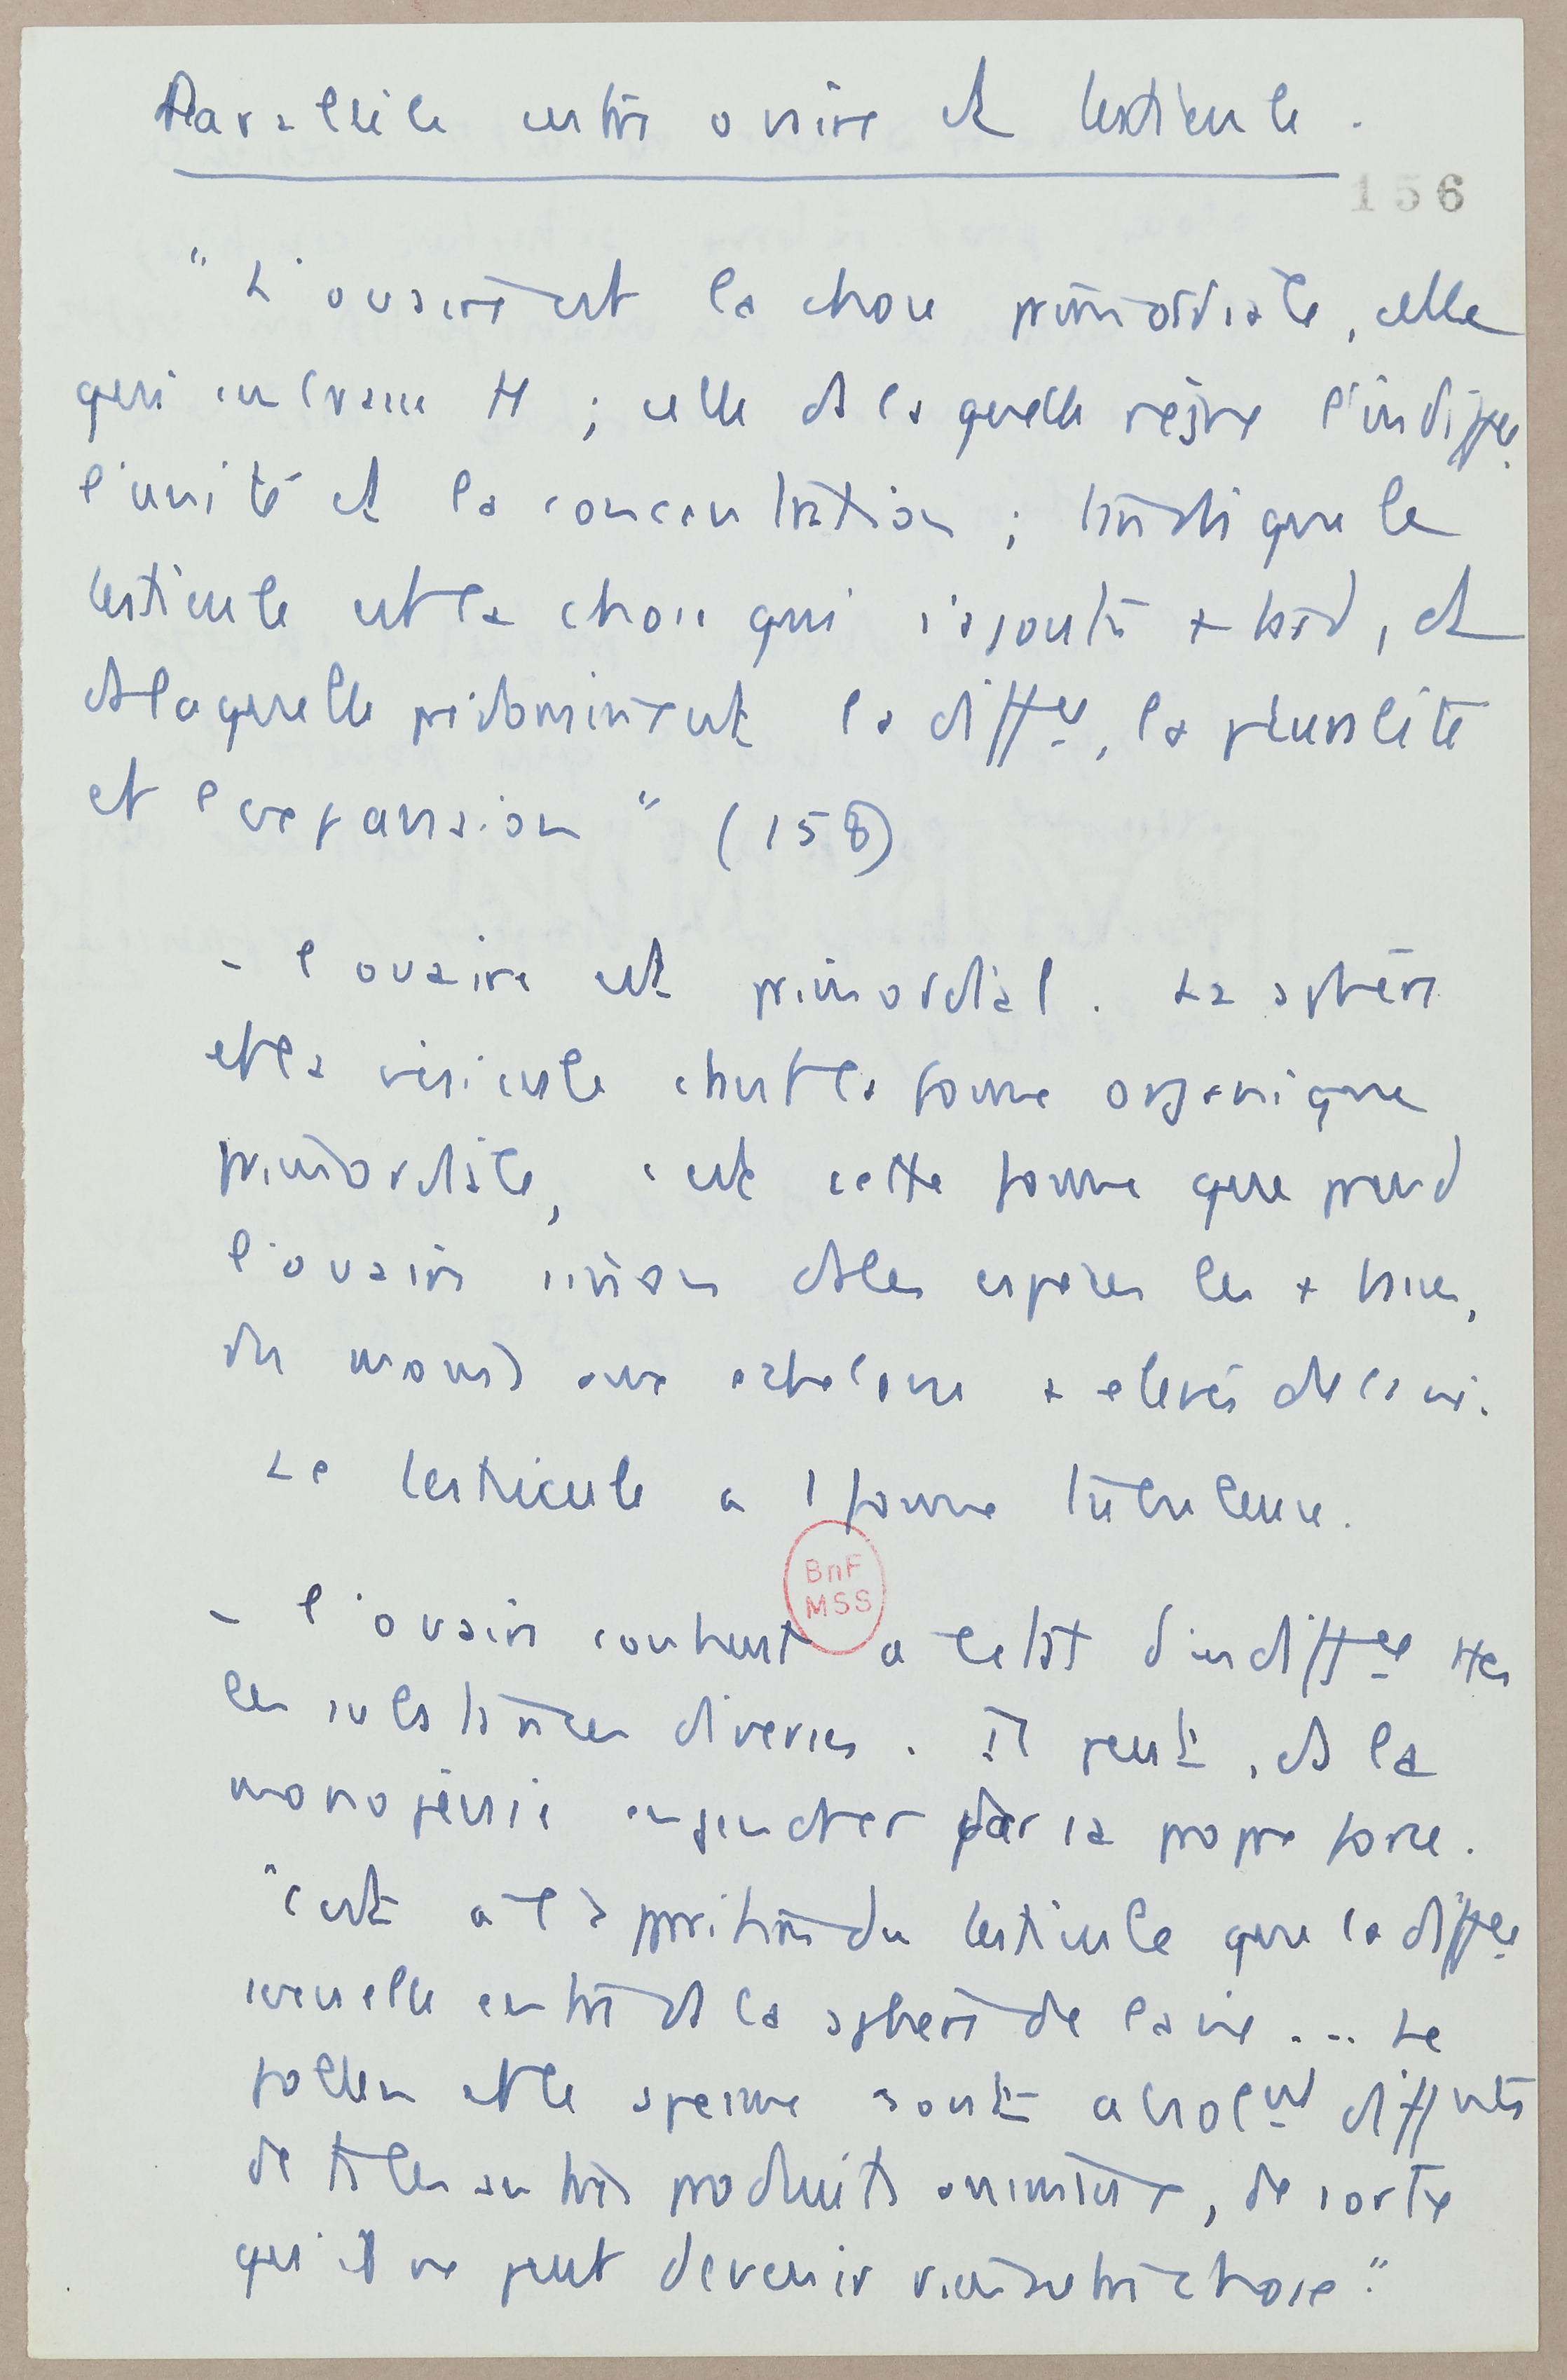 Parallèle entre ovaire et testicule.
156
"L'ovaire est la chose primordiale, celle
qui embrasse tt ; celle ds laquelle règne l'indiffce
l'unité et la concentration ; tandis que le
testicule est la chose qui s'ajoute + tard, et
ds laquelle prédominent la diffce, la pluralité
et l'expansion" (158)
- l'ovaire est primordial. La sphère
et la vésicule étant la forme organique
primordiale, c'est cette forme que prend
l'ovaire sinon ds les espèces les + basses,
du moins aux échelons + élevés de la vie.
Le testicule a 1 forme tubuleuse.
- l'ovaire contient à l'état d'indiffce ttes
les substances diverses. Il peut, ds la
monogénie engendrer par sa propre force.
"C'est à l'apparition du testicule que la diffce
sexuelle entre ds la sphère de la vie ... Le
pollen et le sperme sont absolut différents
de ts les autres produits animaux, de sorte
qu'il ne peut devenir rien autre chose."
BnF
MSS